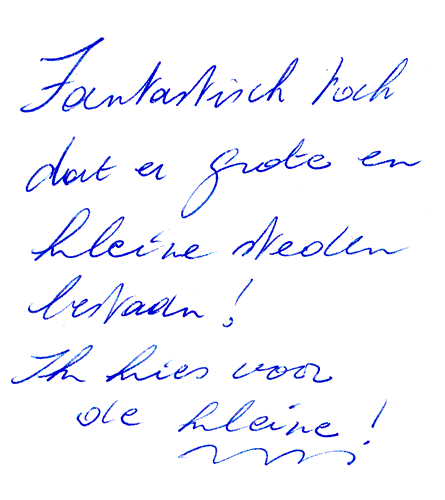 Fantastisch toch
dat er grote en
kleine steden
bestaan!
Ik kies voor
de kleine!